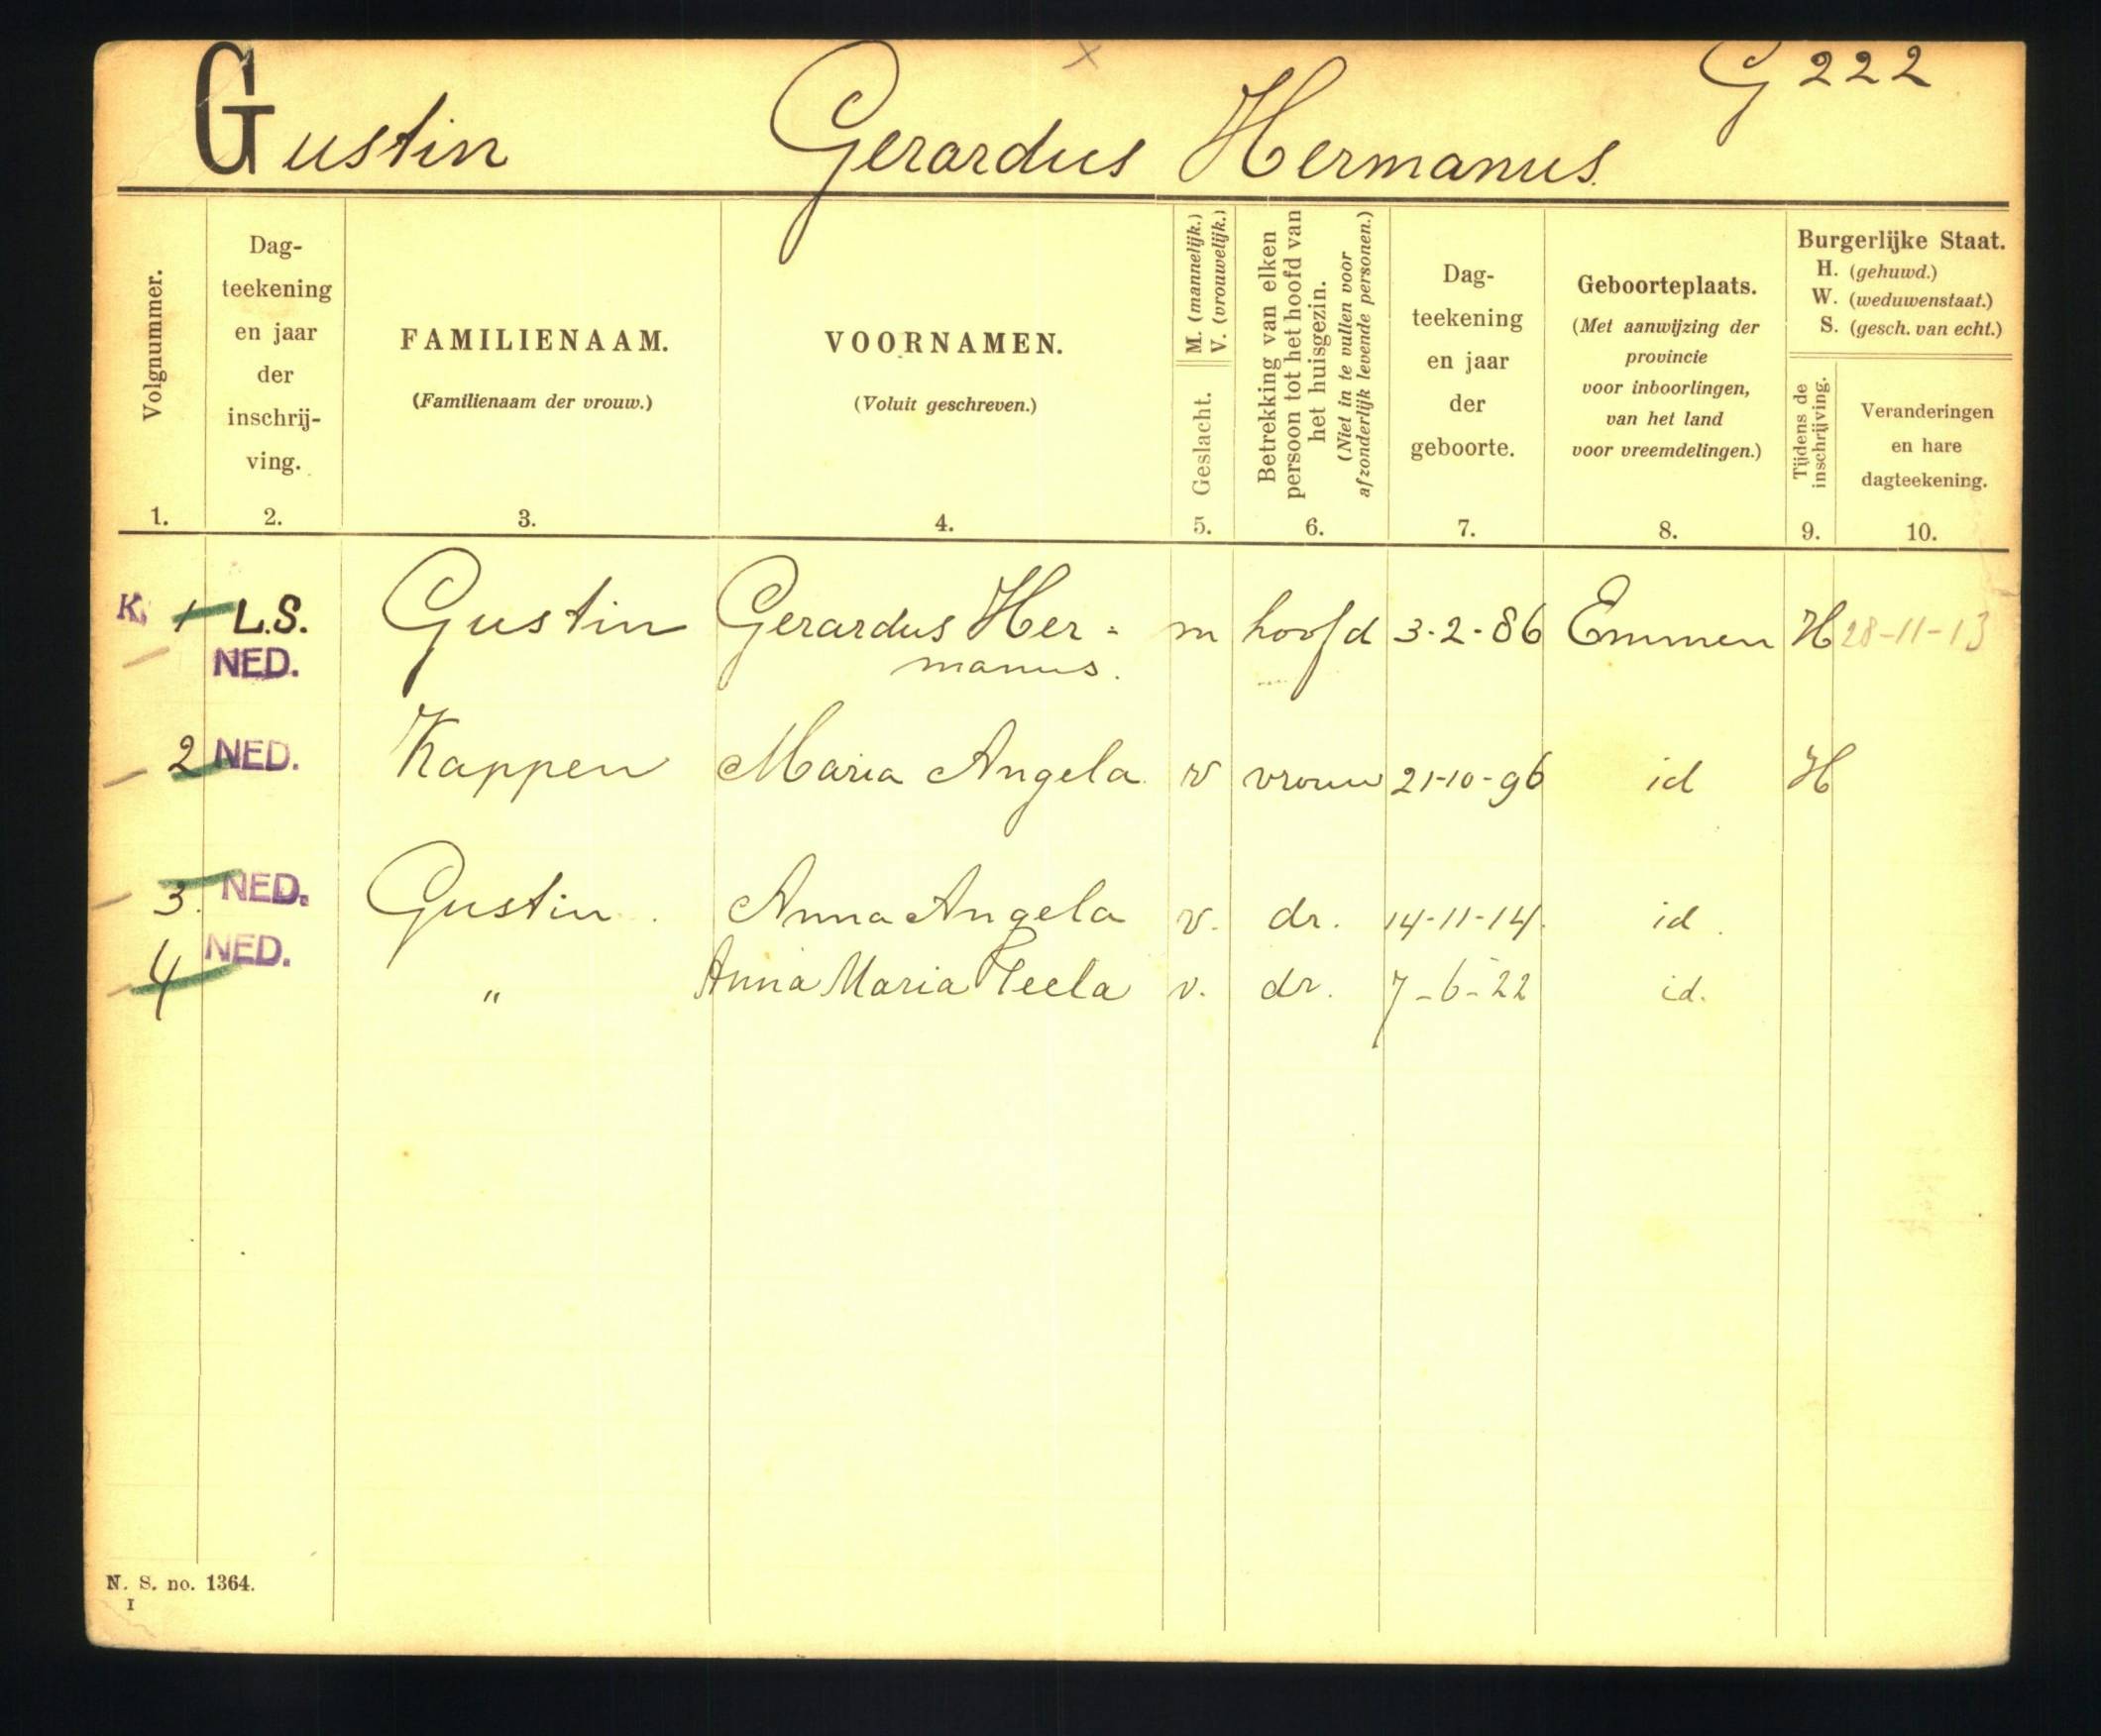 G 222
Gustin Gerardus Hermanus.
Volgnummer.
1.
Dag-
teekening
en jaar
der
inschrij-
ving.
2.
FAMILIENAAM.
(Familienaam der vrouw.)
3.
VOORNAMEN.
(Voluit geschreven.)
4.
M. (mannelijk.)
V. (vrouwelijk.)
Geslacht.
5.
Betrekking van elken
persoon tot het hoofd van
het huisgezin.
(Niet in te vullen voor
afzonderlijk levende personen.)
6.
Dag-
teekening
en jaar
der
geboorte.
7.
Geboorteplaats.
(Met aanwijzing der
provincie
voor inboorlingen,
van het land
voor vreemdelingen.)
8.
Burgerlijke Staat.
H. (gehuwd.)
W. (weduwenstaat.)
S. (gesch. van echt.)
Tijdens de
inschrijving.
9.
Veranderingen
en hare
dagteekening.
10.
K. 1 L.S. Gustin Gerardus Her- m hoofd 3-2-86 Emmen H 28-11-13
NED. manus.
2 NED. Kappen Maria Angela v vrouw 21-10-96 id H
3. NED. Gustin. Anna Angela v. dr. 14-11-14. id.
4 NED. " Anna Maria Tecla v. dr. 7-6-22 id.
N. S. no. 1364.
I